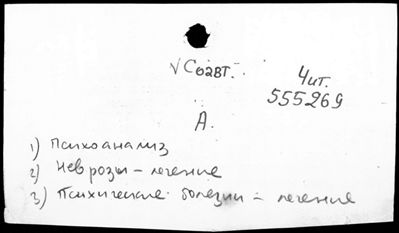 √ Соавт.
Чит.
555269
А.
1) Психоанализ
2) неврозы – лечение
3) Психические болезни – лечение